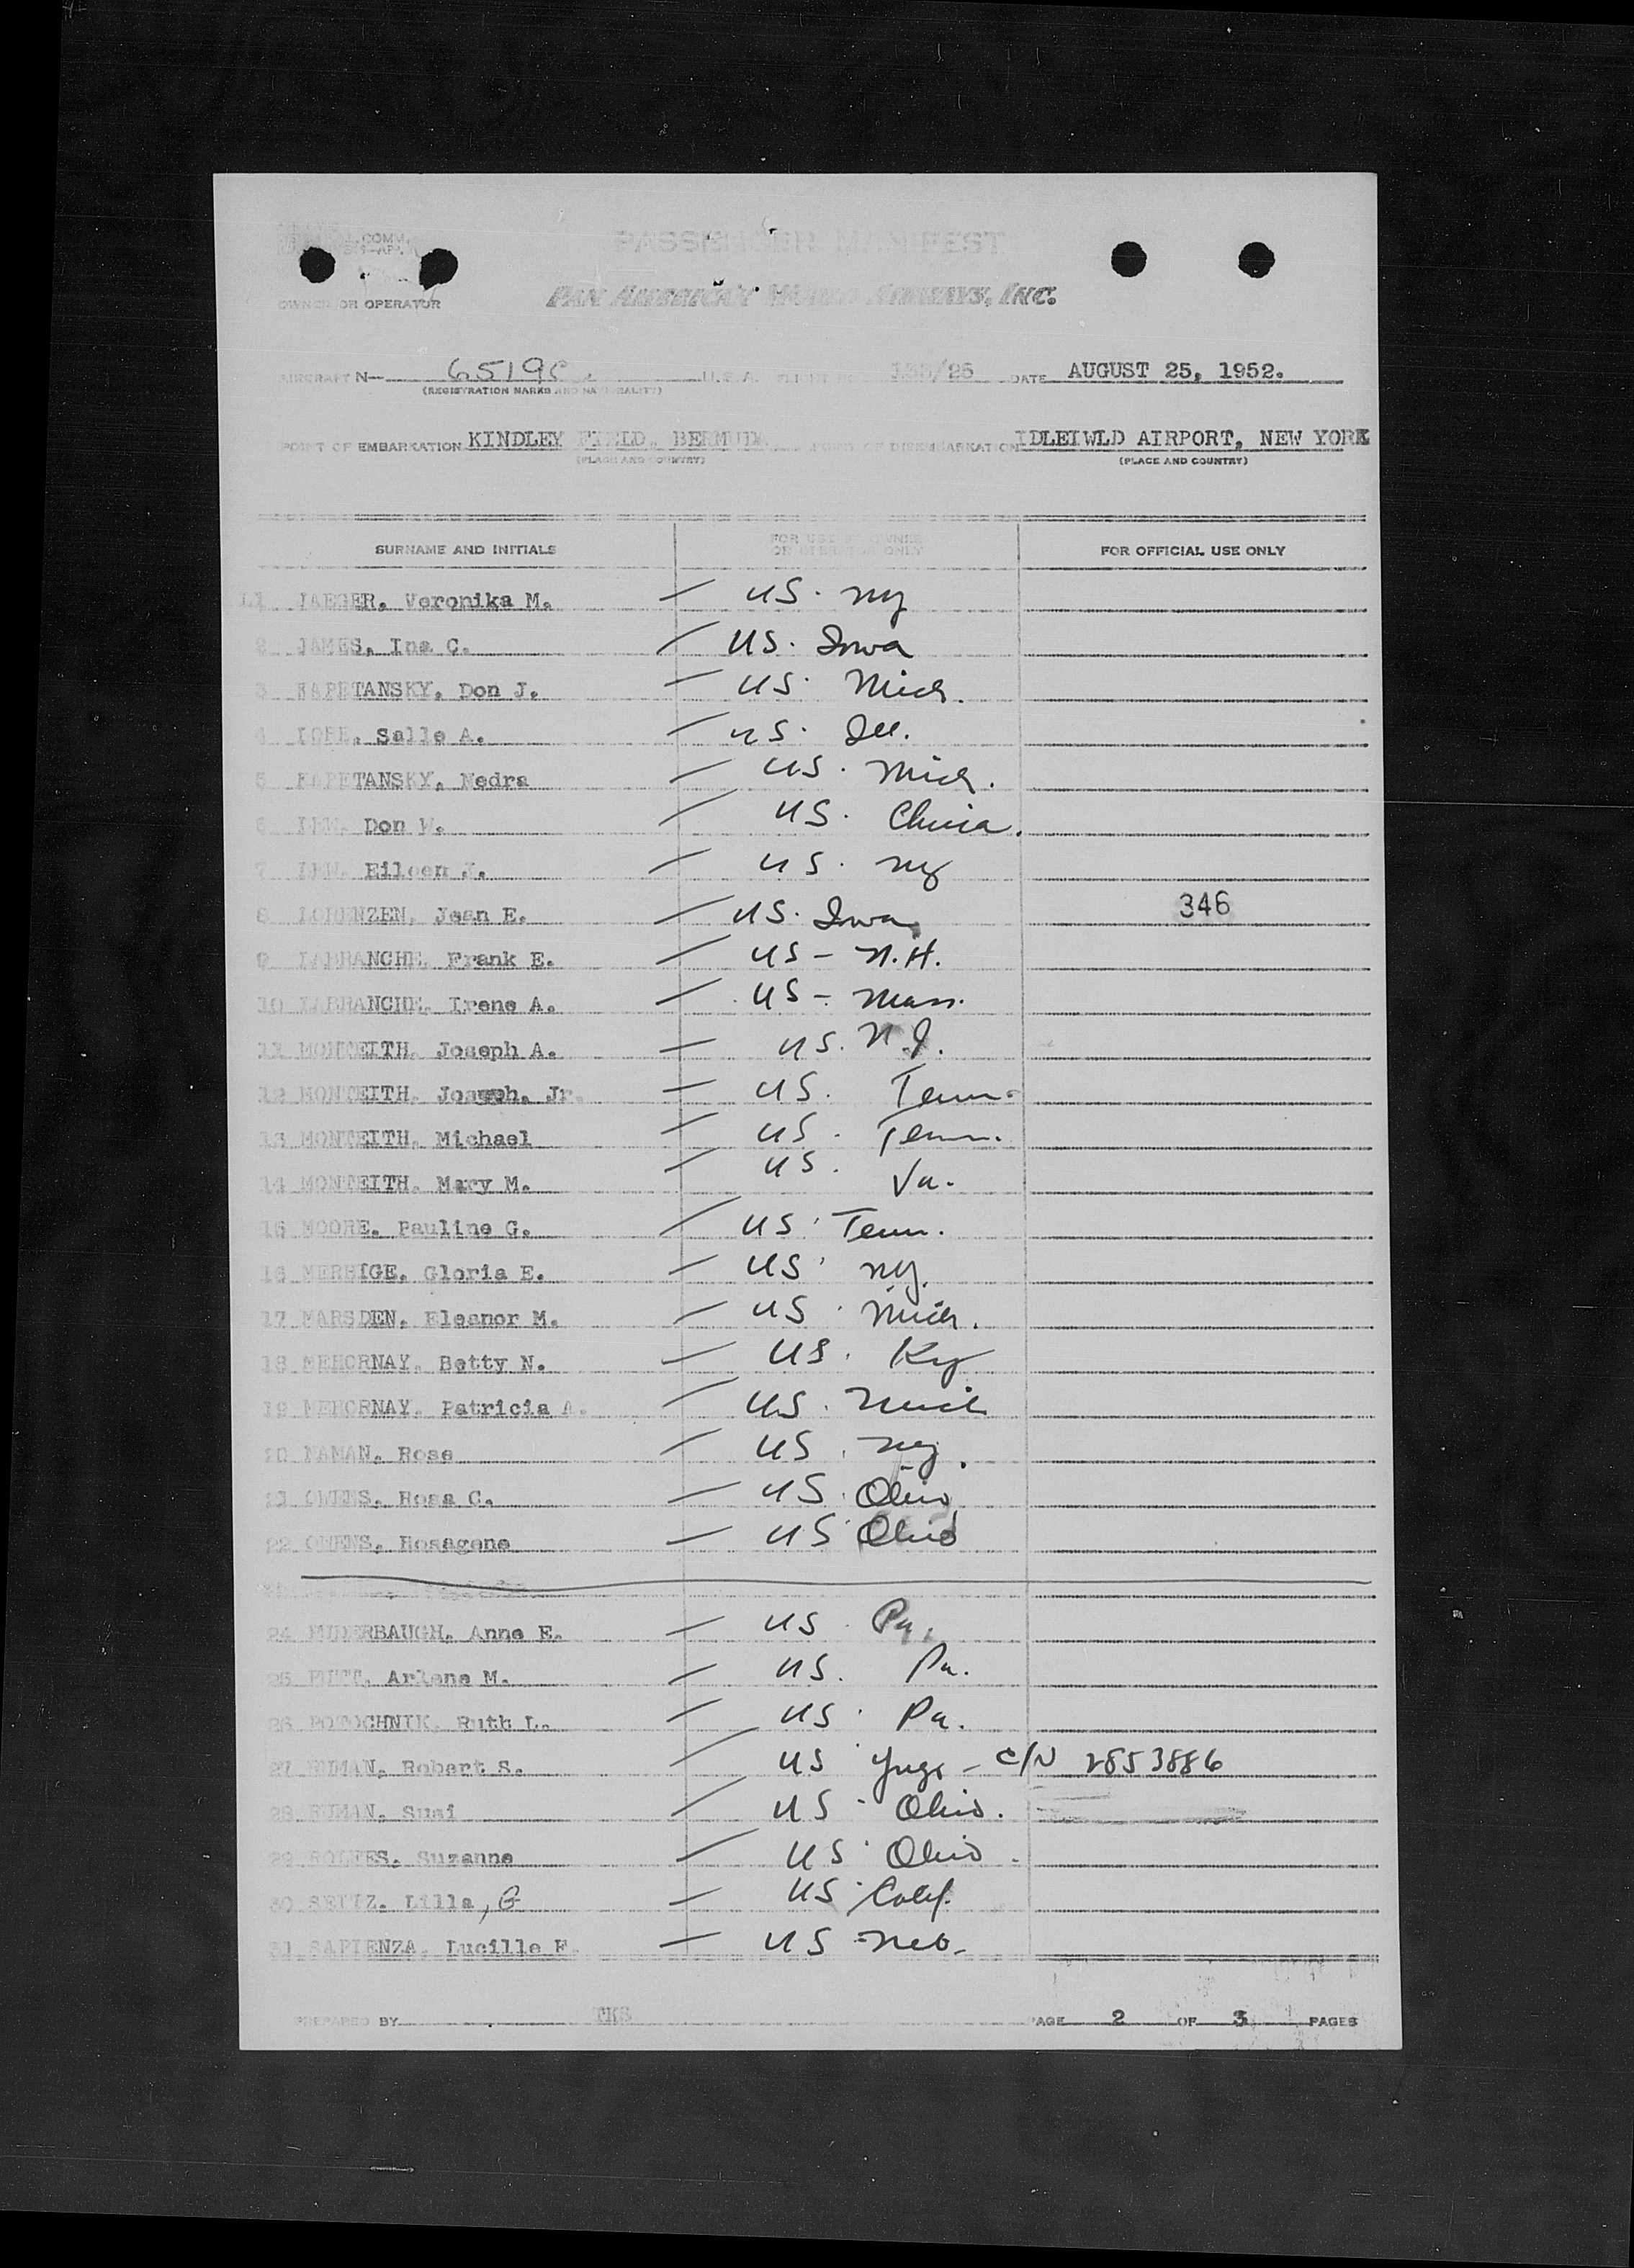 COMM.
PASSENGER MANIFEST
OWNER OR OPERATOR
PAN AMERICAN WORLD AIRWAYS, INC.
AIRCRAFT N— 6519C U.S.A. FLIGHT NO. /25 DATE AUGUST 25, 1952.
(REGISTRATION MARKS AND NATIONALITY)
POINT OF EMBARKATION KINDLEY FIELD, BERMUDA POINT OF DISEMBARKATION IDLEIWLD AIRPORT, NEW YORK
(PLACE AND COUNTRY) (PLACE AND COUNTRY)
SURNAME AND INITIALS FOR USE BY OWNER OR OPERATOR ONLY FOR OFFICIAL USE ONLY
JAEGER, Veronika M. — US. NY
2 JAMES, Ina C. — US. Iowa
3 KAPETANSKY, Don J. — US. Mich.
4 Salle A. — US. Ill.
5 KAPETANSKY, Nedra — US. Mich.
6 Don W. — US. China.
7 Eileen J. — US. NY
8 LORENZEN, Jean E. — US. Iowa 346
9 LABRANCHE, Frank E. — US - N.H.
10 LABRANCHE, Irene A. — US - Mass.
11 MONTEITH, Joseph A. — US. N.J.
12 MONTEITH, Joseph, Jr. — US. Tenn.
13 MONTEITH, Michael — US. Tenn.
14 MONTEITH, Mary M. — US. Va.
15 MOORE, Pauline G. — US. Tenn.
16 MERHIGE, Gloria E. — US. NY.
17 MARSDEN, Eleanor M. — US. Mich.
18 MEHORNAY, Betty N. — US. Ky
19 MEHORNAY, Patricia A. — US. Mich
20 NAMAN, Rose — US. NY.
21 OWENS, Rosa C. — US. Ohio
22 OWENS, Rosagene — US Ohio
24 PUDERBAUGH, Anne E. — US. Pa.
25 PUTT, Arlene M. — US. Pa.
26 POTOCHNIK, Ruth L. — US. Pa.
27 RUMAN, Robert S. — US Yugo - C/N 2853886
28 RUMAN, Susi — US. Ohio.
29 ROLFES, Suzanne — US Ohio.
30 SEITZ, Lilla, G — US Calif.
31 SAPIENZA, Lucille F. — US Neb.
PREPARED BY TKS PAGE 2 OF 3 PAGES